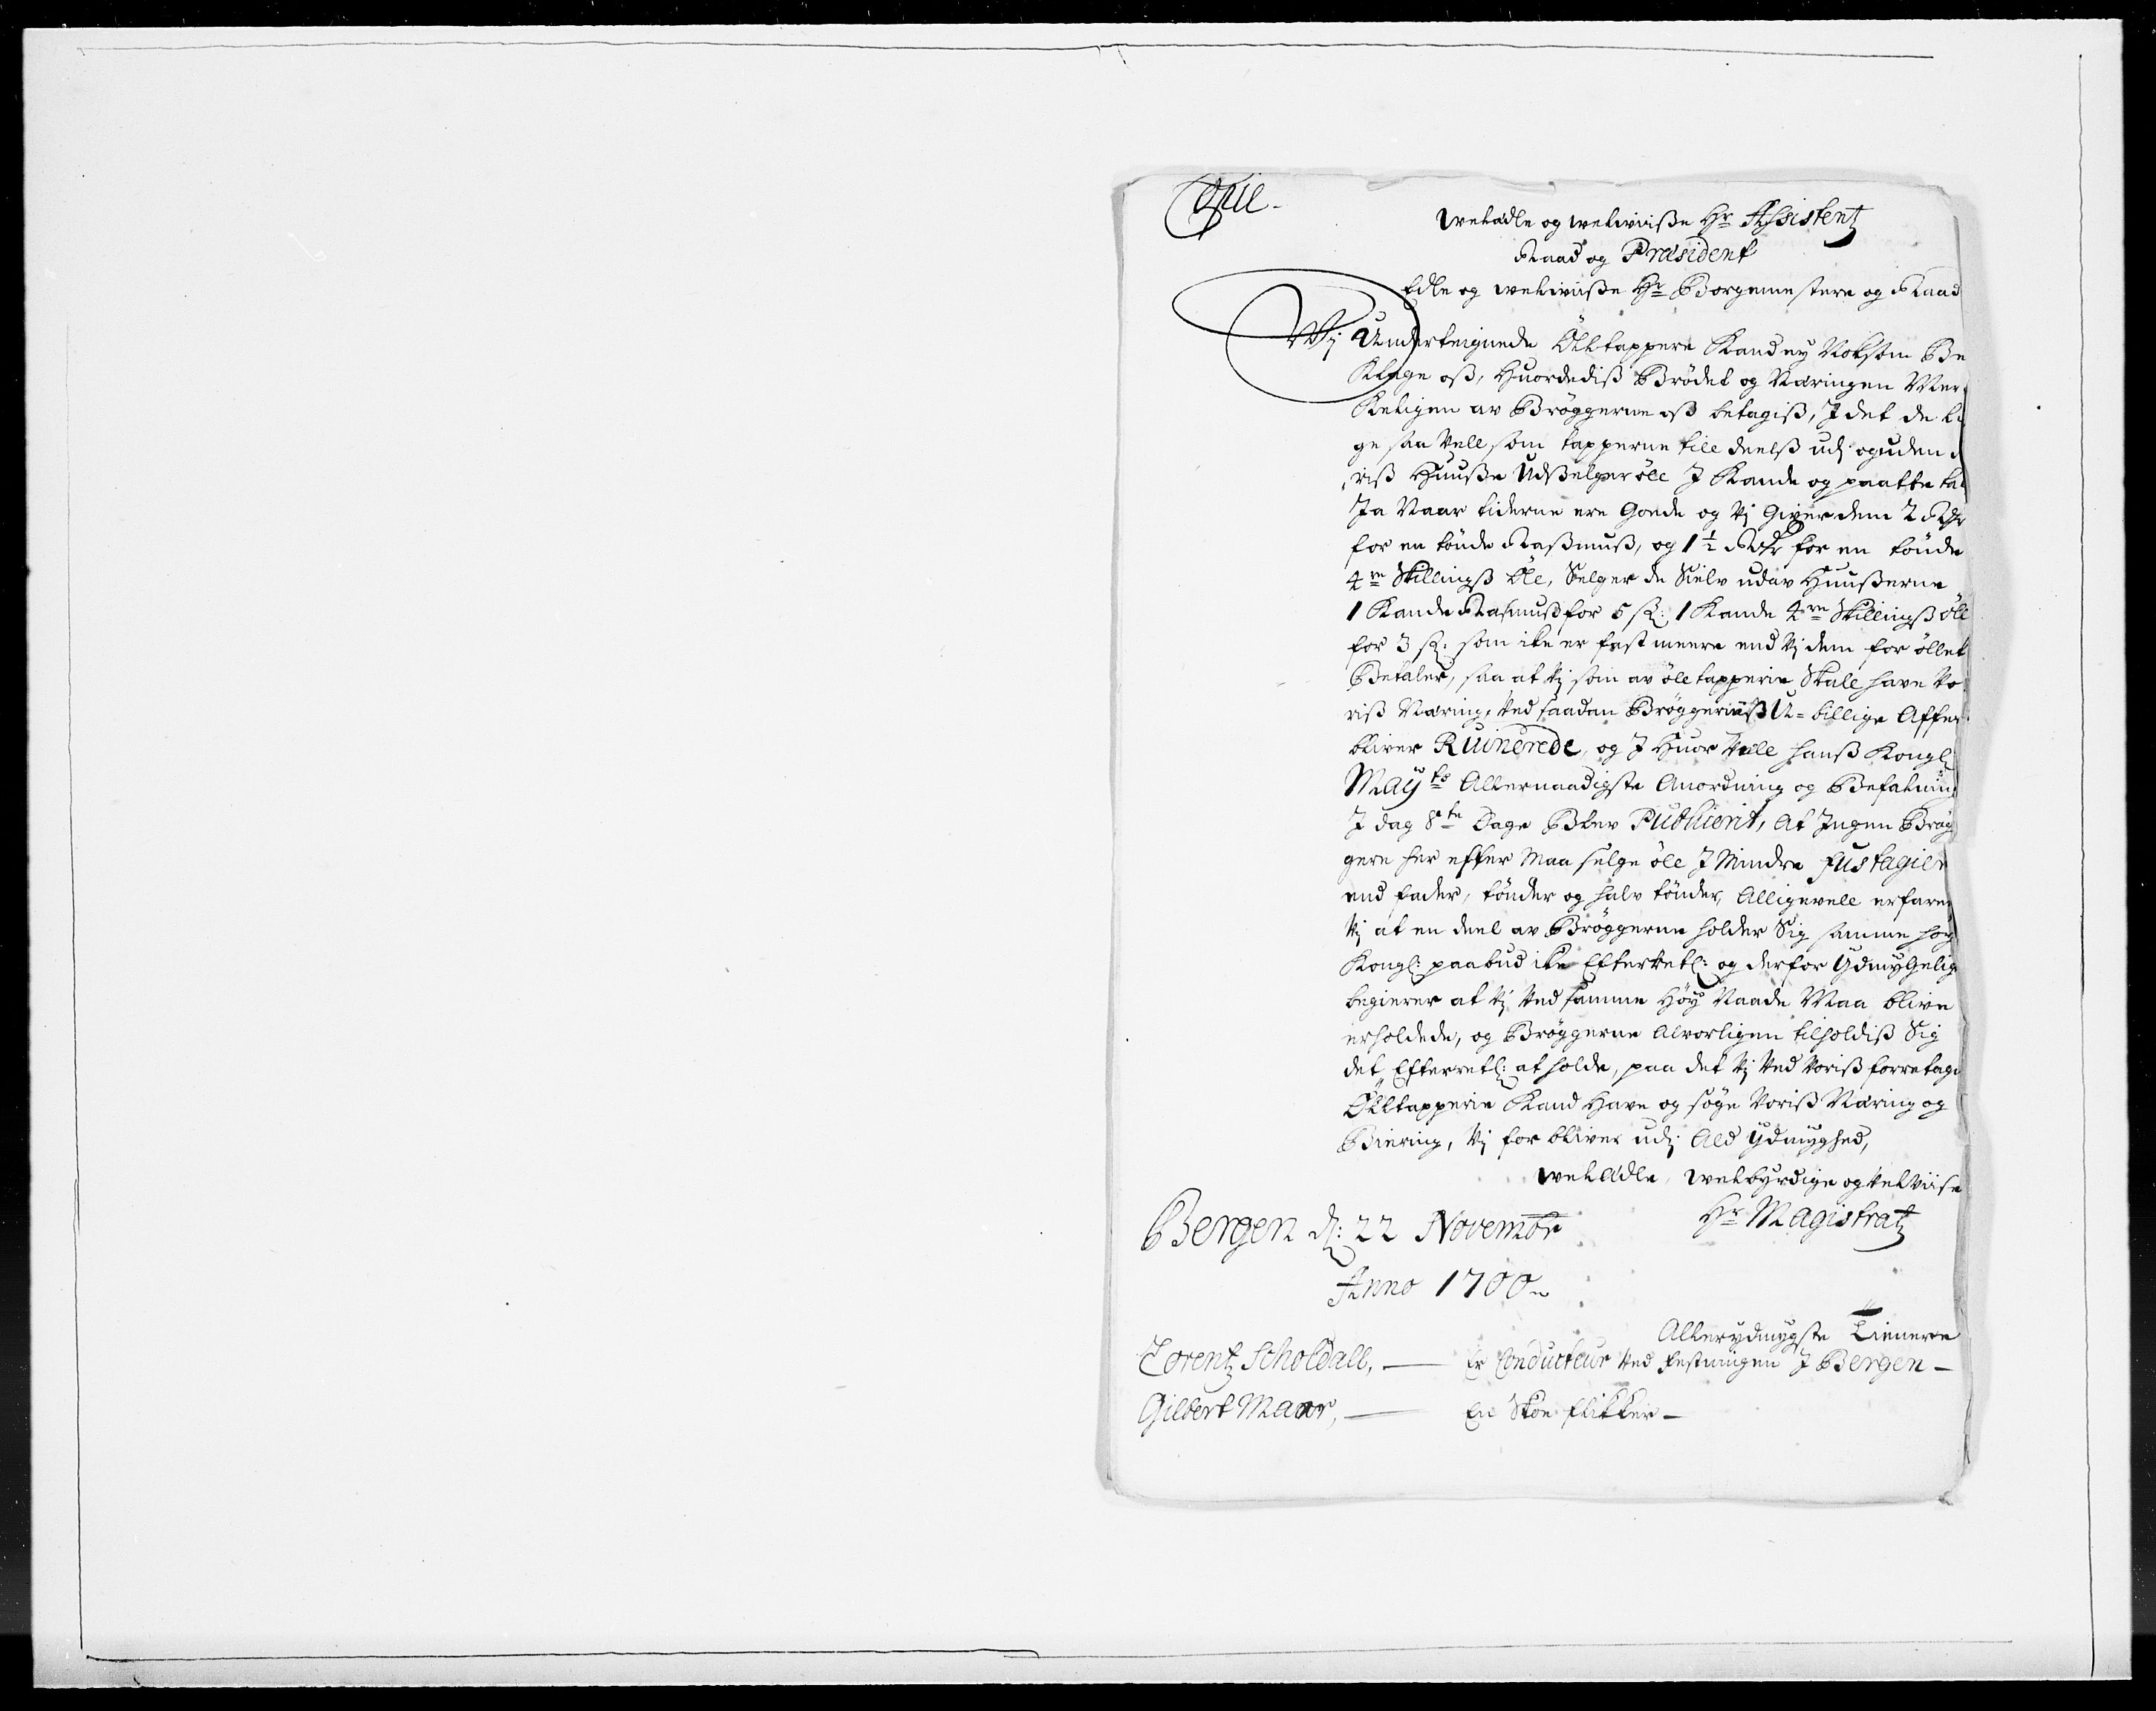 Copie
Welædle og welwiiße Hr Assistentz
Raad og Præsident
Edle og welwiiße Hr Borgemestere og Raad
Wj Underteignede Ølltappere Kand ej Noksom Be
Klage oß, Huordediß Brødet og Næringen Mer¬
Keligen av Brøggerne oß betagiß, J det de li
ge saa Vell som tapperne till deelß udj og uden d
riß Huuße Udßelger øll J Kande og paatte ta
Ja Naar tiderne ere Goede og Vj Giver dem 2 Rdr
for en tønde Raßmuß, og 1½ Rdr for en tønde
4re Skillingß Øll, Selger de Sielv udav Huußerne
1 Kande Rasmuß for 5 s: 1 Kande 4re Skillingß Øll
for 3 s: som ike er fast meere end Vj dem for øllet
Betaler, saa at Vj som av ølltapperie Skall have Vo
riß Næring, Ved saadan Brøggerniß U-billige Affer
bliver Ruinerede, og J Huor Vell hanß Kongl:
Mayts Allernaadigste Anordning og Befalning
J dag 8te Dage Blev Publicerit, At Ingen Brøg
gere her effter Maa selge øll J Mindre fustagier
end fader, tønder og halv tønder, Alligevell erfare
Vj at en deel av Brøggerne holder Sig samme høy
Kongl: paabud ike Efterretl: og derfor Ydmygelig
begierer at Vj Ved samme Høy Naade Maa blive
erholdede, og Brøggerne Alvorligen tilholdiß Sig
det Efterretl: at holde, paa det Vj Ved Voriß forretage
Ølltapperie Kand Have og søge Voriß Næring og
Biering, Vj forbliver udj Ald Ydmyghed,
WelEdle, Welbyrdige og Velviise
Hr Magistratz
Bergen d: 22 Novembr
Anno 1700
Allerydmygste Tienere
Lorentz Scholdall, — Er Conducteur Ved Festningen J Bergen —
Gilbert Maar, — En Skoe flikker —